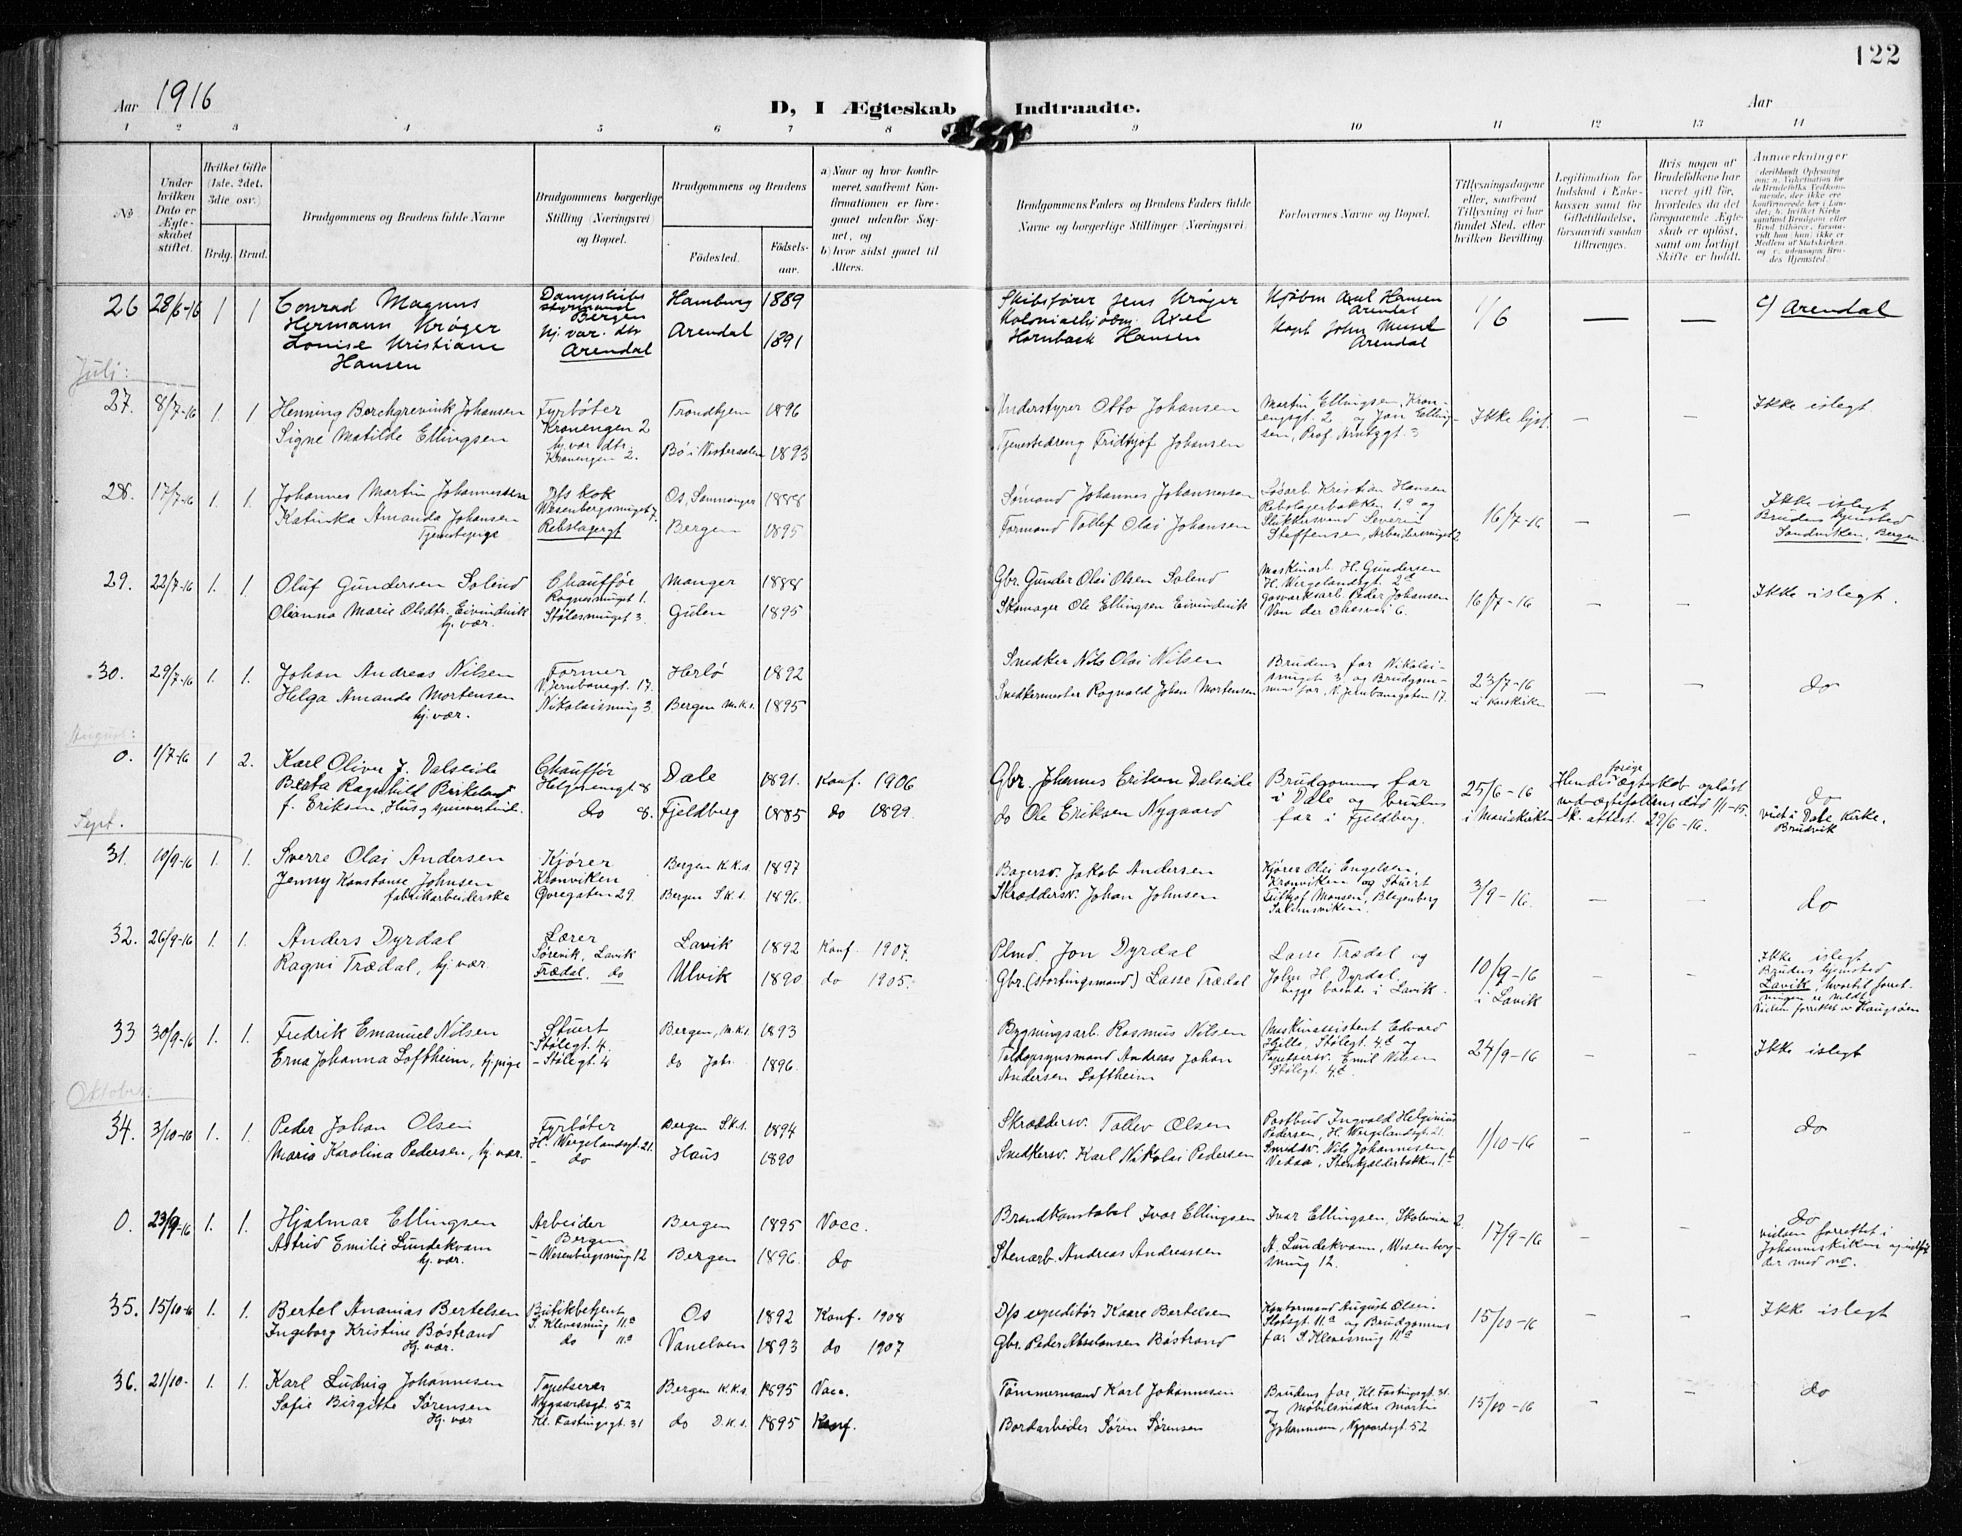 122
Aar 1916
D, I Ægteskab Indtraadte.
Aar
1 2 3 4 5 6 7 8 9 10 11 12 13 14
№
Under hvilken Dato er Ægteskabet stiftet.
Hvilket Gifte (1ste, 2det, 3die osv.)
Brdg. Brud.
Brudgommens og Brudens fulde Navne
Brudgommens borgerlige Stilling (Næringsvei) og Bopæl.
Brudgommens og Brudens
Fødested.
Fødselsaar.
a) Naar og hvor konfirmeret, saafremt Konfirmationen er foregaaet udenfor Sognet, og
b) hvor sidst gaaet til Alters.
Brudgommens Faders og Brudens Faders fulde Navne og borgerlige Stillinger (Næringsvei)
Forlovernes Navne og Bopæl.
Tillysningsdagene eller, saafremt Tillysning ei har fundet Sted, efter hvilken Bevilling.
Legitimation for Indskud i Enkekassen samt for Giftetilladelse, forsaavidt saadan tiltrænges.
Hvis nogen af Brudefolkene har været gift før, hvorledes da det foregaaende Ægteskab er opløst, samt om lovligt Skifte er holdt.
Anmerkninger
26 28/6-16 1 1 Conrad Magnus Hermann Krøger
Louise Kristiane Hansen
Dampskibsstyrmand Bergen
Hj. vær. dtr Arendal
Hamburg 1889
Arendal 1891
Skibsfører Jens Krøger
Kolonialkjøbm. Axel Hornbæk Hansen
Kjøbm Axel Hansen Arendal
Kapt John Arendal
1/6 — — c) Arendal
Juli:
27. 8/7-16 1. 1 Henning Borchgrevink Johansen
Signe Matilde Ellingsen
Fyrbøter Kronengen 2
hj. vær dtr. Kronengen 2.
Trondhjem 1896
Bø i Vesteraalen 1893
Understyrer Otto Johansen
Tjenestedreng Fridtjof Johansen
Martin Ellingsen, Kronengsgt. 2 og Jon Ellingsen, Prof. gt. 3
Ikke lyst — — Ikke i slegt
28. 17/7-16 1. 1. Johannes Martin Johannessen
Katinka Amanda Johansen
Tjenestepige
D/s kok
Wesenbergsmuget 7.
Rebslagergt
Os, Samnanger 1888
Bergen 1895
Sømand Johannes Johannessen
Formand Tollef Olai Johansen
Løsarb. Kristian Hansen Rebslagerbakken 1.a og
Stykkersvend Severin Steffensen, Arbeidersmuget 2
16/7-16 — — Ikke i slegt
Brudens hjemsted
Sandviken, Bergen
29. 22/7-16 1. 1. Oluf Gundersen Solend
Olianna Marie Olsdtr. Eivindvik
hj. vær.
Chauffør
Rognesmuget 1.
Stølesmuget 3.
Manger 1888
Gulen 1895
Gbr. Gunder Olai Olsen Solend
Skomager Ole Ellingsen Eivindvik
Maskinarb. H. Gundersen
H. Wergelandsgt. 2d
Gasværksarb. Peder Johansen
16/7-16 — — Ikke i slegt.
30. 29/7-16 1. 1. Johan Andreas Nilsen
Helga Amanda Mortensen
hj. vær.
Former
V. Jernbanegt. 17.
Nikolaismug 3.
Herlø 1892
Bergen M.k.s. 1895
Snedker Nils Olai Nilsen
Snedkermester Ragnvald Johan Mortensen
Brudens far Nikolaismuget 3 og Brudgommens far, V. Jernbanegaten 17.
23/7-16 i Korskirken — — do
August:
0. 1/7-16 1 2. Karl Oliver J. Dalseide
Berta Ragnhild Birkeland
f. Eriksen,
Chauffør
Helgesensgt 8
do 8.
Dale 1891. Konf. 1906
Fjeldberg 1885 do 1899.
Gbr. Johannes Eriksen Dalseide
do Ole Eriksen Nygaard
Brudgommens far i Dale og brudens far i Fjeldberg.
25/6-16 i Mariakirken
Hendes forige ægteskab opløst ved ægtefællens død 1/1-15.
sk. attest. 29/6-16.
do
viet i Dale Kirke, Bruvik
Sept.
31. 10/9-16 1. 1. Sverre Olai Andersen
Jenny Konstanse Johnsen
fabrikarbeiderske
Kjører
Kronviken
Øvregaten 29.
Bergen K.k.s. 1897
Bergen S.k.s. 1896.
Bagersv. Jakob Andersen
Skræddersv. Johan Johnsen
Kjører Olai Engelsen, Kronviken og Stuert
Fridtjof Monsen,
3/9-16. — — do
32. 26/9-16 1. 1. Anders Dyrdal
Ragni Trædal, hj. vær.
Lærer
Sørevik, Lavik
Trædal, do
Lavik 1892 Konf. 1907.
Ulvik 1890 do 1905.
Plmd. Jon Dyrdal
Gbr. (stortingsmand) Lasse Trædal
Lasse Trædal og
John H. Dyrdal
begge boende i Lavik.
10/9-16 i Lavik — — Ikke i slegt
Brudens hjemsted
Lavik, hvortil forretningen er meldt.
33 30/9-16 1. 1. Fredrik Emanuel Nilsen
Erna Johanna Loftheim, hj. pige
Stuert
-Stølegt. 4.
-Stølegt. 4
Bergen, M.k.s. 1893
do Joh. 1896.
Bygningsarb. Rasmus Nilsen
Toldopsynsmand Andreas Johan Andersen Loftheim
Maskinassistent Edvard Hille, Stølegt. 4c og
Tapetsersv. Emil Nilsen Stølegt. 4c.
24/9-16 — — Ikke i slegt
Oktober:
34. 3/10-16 1. 1. Peder Johan Olsen
Marie Karolina Pedersen, hj. vær.
Fyrbøter
H. Wergelandsgt. 21.
- do
Bergen S.k.s. 1894
Haus 1890
Skræddersv. Tollev Olsen
Snedkersv. Karl Nikolai Pedersen
Postbud Ingvald Pedersen, H. Wergelandsgt. 21.
Smeddsv. Nils Johannesen Vedaa, Stenkjelderbakken 1b
1/10-16 — — do
0. 23/9-16 1. 1. Hjalmar Ellingsen
Astrid Emilie Lundekvam
hj. vær.
Arbeider
- Bergen
- Wesenbergsmug 12
Bergen 1895 Vacc.
Bergen 1896. do
Brandkonstabel Ivar Ellingsen
Stenarb. Andreas Andreassen
Ivar Ellingsen, Skolevien 2.
A. Lundekvam, Wesenbergsmug 12.
17/9-16 — — do
vielsen forrettet i Johanneskirken og indført der med no.
35. 15/10-16 1. 1. Bertel Ananias Bertelsen
Ingeborg Kristine Bøstrand
Hj. vær.
Butikbetjent
S. Klevesmug 11a
do 11a
Os 1892 Konf. 1908
Vanelven 1893 do 1907
D/s expeditør Kaare Bertelsen
Gbr. Peder Absalonsen Bøstrand
Kontormand August Olsen Slotsgt. 11a og Brudgommens far S. Klevesmug 11a
15/10-16 — — Ikke i slegt
36. 21/10- 1. 1. Karl Ludvig Johannesen
Sofie Birgitte Sørensen
Hj. vær
Tapetserer
Nygaardsgt. 52
Kl. Fostingsgt. 31
Bergen K.k.s. 1895 Vacc.
do D.k.s. 1895 Konf.
Tømmermand Karl Johannesen
Bordarbeider Sørin Sørensen
Brudens far, Kl. Fostingsgt. 31.
og Møbelsnidker Martin Johannesen, Nygaardsgt. 52
15/10-16 — — do